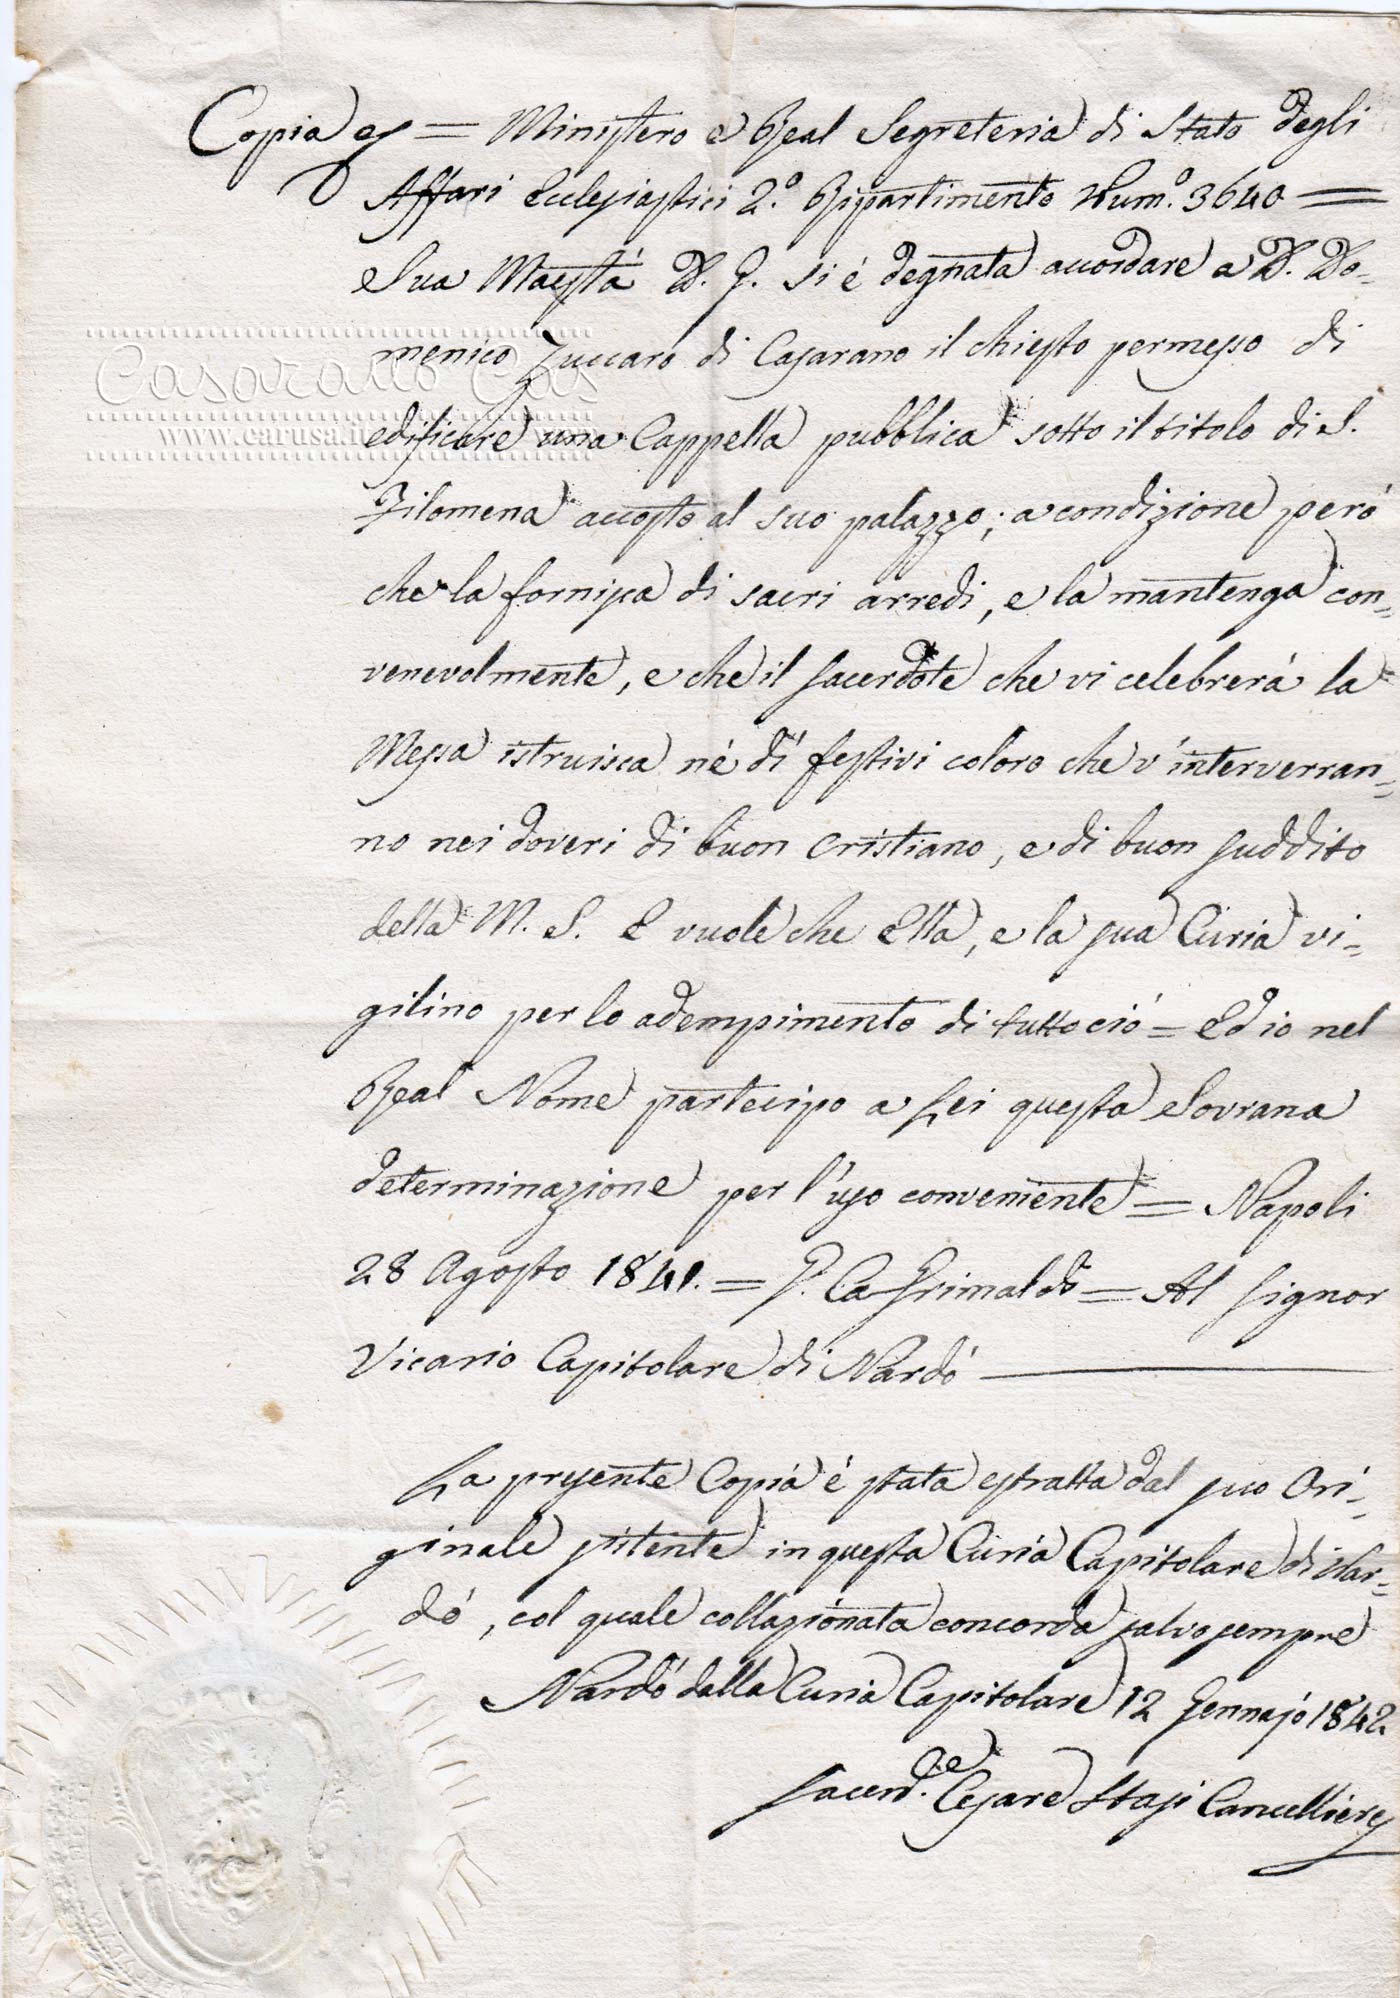 Copia = Ministero e Real Segreteria di Stato degli
Affari Ecclesiastici 2.° Ripartimento Num.° 3640 =
Sua Maestá D. G. si é degnata accordare a D. Do-
menico Zuccaro di Casarano il chiesto permesso di
Casarano
edificare una Cappella pubblica sotto il titolo di S.
www.carusa.i
Filomena accosto al suo palazzo; a condizione peró
che la fornisca di sacri arredi, e la mantenga con-
venevolmente, e che il sacerdote che vi celebrerá la
Messa istruisca né dí festivi coloro che v'interverran-
no nei doveri di buon cristiano, e di buon suddito
della M. S. E vuole che Ella, e la sua Curia vi-
gilino per lo adempimento di tutto ció = Ed io nel
Real Nome partecipo a Lei questa Sovrana
determinazione per l'uso conveniente = Napoli
28 Agosto 1841. = P. Ca Grimaldo = Al Signor
Vicario Capitolare di Nardó
La presente Copia é stata estratta dal suo Ori-
ginale sitente in questa Curia Capitolare di Nar-
dó, col quale collazionata concorda salvo sempre
Nardó dalla Curia Capitolare 12 Gennajo 1842
Sacerd.te Cesare Stasi Cancelliere